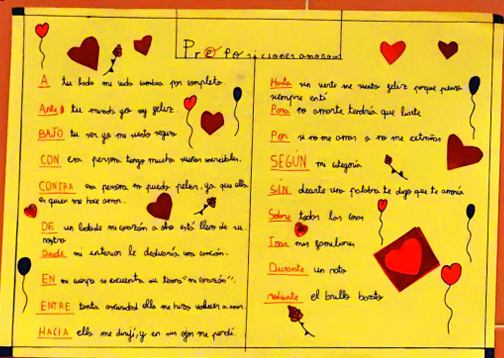 Preposiciones amorosas
A tu lado mi vida cambia por completo.
Ante tu mirada yo soy feliz.
BAJO tu ser yo me siento seguro
CON esa persona tengo muchos sueños increíbles.
CONTRA esa persona no puedo pelear, ya que ella
es quien me hace amar.
DE un latido mi corazón a otro está lleno de su
rostro
Desde mi interior le dedicaría una canción.
EN mi cuerpo se encuentra su tema "mi corazón".
ENTRE tanta oscuridad ella me hizo volver a amar.
HACIA ella me dirijí, y en sus ojos me perdí.
Hasta sin verte me siento feliz porque pienso
siempre en ti
Para no amarte tendría que
Por si no me amas o no me extrañas
SEGÚN mi categoría
SIN decirte una palabra te digo que te amaría
Sobre todas las cosas
Tras mis
Durante un rato
Mediante el brillo